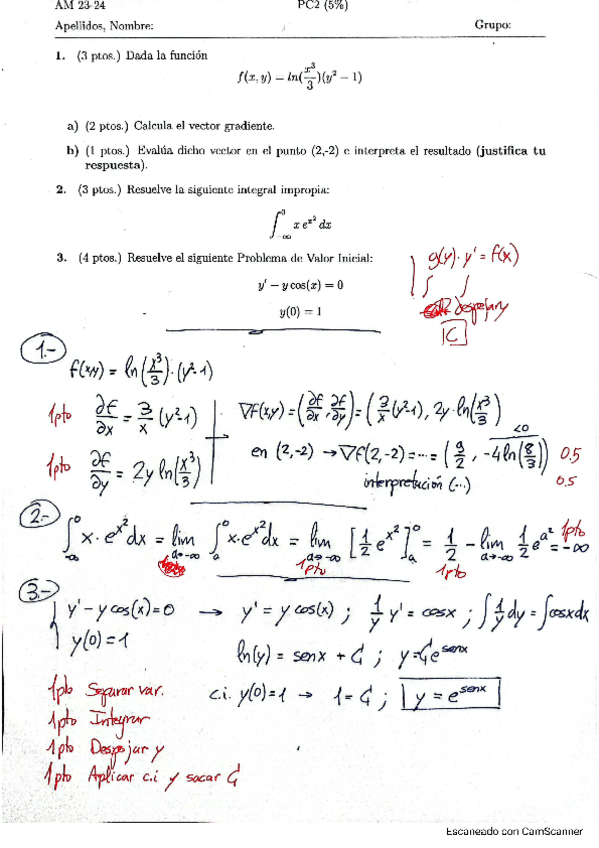 AM 23-24 PC2 (5%)
Apellidos, Nombre: Grupo:
1. (3 ptos.) Dada la función
f(x, y) = ln(x³/3)(y² − 1)
a) (2 ptos.) Calcula el vector gradiente.
b) (1 ptos.) Evalúa dicho vector en el punto (2,-2) e interpreta el resultado (justifica tu
respuesta).
2. (3 ptos.) Resuelve la siguiente integral impropia:
∫_{-∞}^{0} x e^{x²} dx
3. (4 ptos.) Resuelve el siguiente Problema de Valor Inicial:
g(y)·y' = f(x)
y' − y cos(x) = 0
∫ ∫
y(0) = 1
despejar y
C
1.-
f(x,y) = ln(x³/3)·(y²-1)
1pto ∂f/∂x = 3/x (y²-1)
∇f(x,y) = (∂f/∂x, ∂f/∂y) = (3/x (y²-1), 2y·ln(x³/3))
1pto ∂f/∂y = 2y ln(x³/3)
<0
en (2,-2) → ∇f(2,-2) = ... = (9/2, -4ln(8/3)) 0.5
interpretación (...) 0.5
2.-
∫_{-∞}^{0} x·e^{x²}dx = lim_{a→-∞} ∫_{a}^{0} x·e^{x²}dx = lim_{a→-∞} [1/2 e^{x²}]_{a}^{0} = 1/2 - lim_{a→-∞} 1/2 e^{a²} = -∞
1pto 1pto 1pto
3.-
y'-y cos(x)=0 → y' = y cos(x) ; 1/y y' = cosx ; ∫1/y dy = ∫cosxdx
y(0)=1
ln(y) = senx + C ; y = C e^{senx}
1pto Separar var.
c.i. y(0)=1 → 1 = C ; y = e^{senx}
1pto Integrar
1pto Despejar y
1pto Aplicar c.i y sacar C
Escaneado con CamScanner